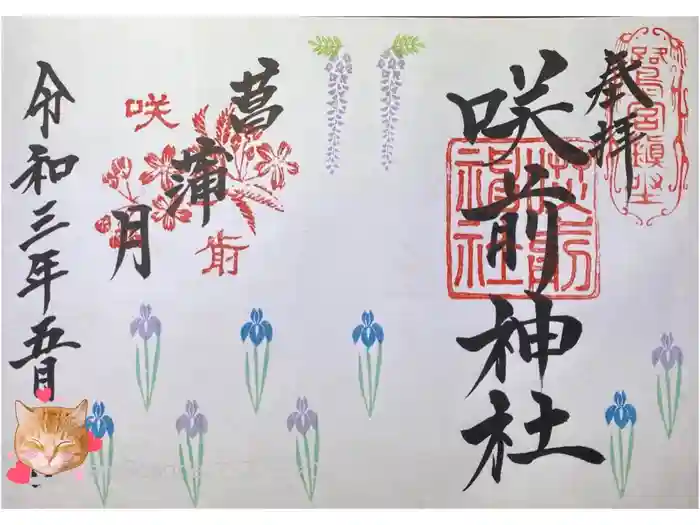 鷺宮鎮坐
奉拝
咲前神社
咲前神社
菖蒲月
咲
前
令和三年五月